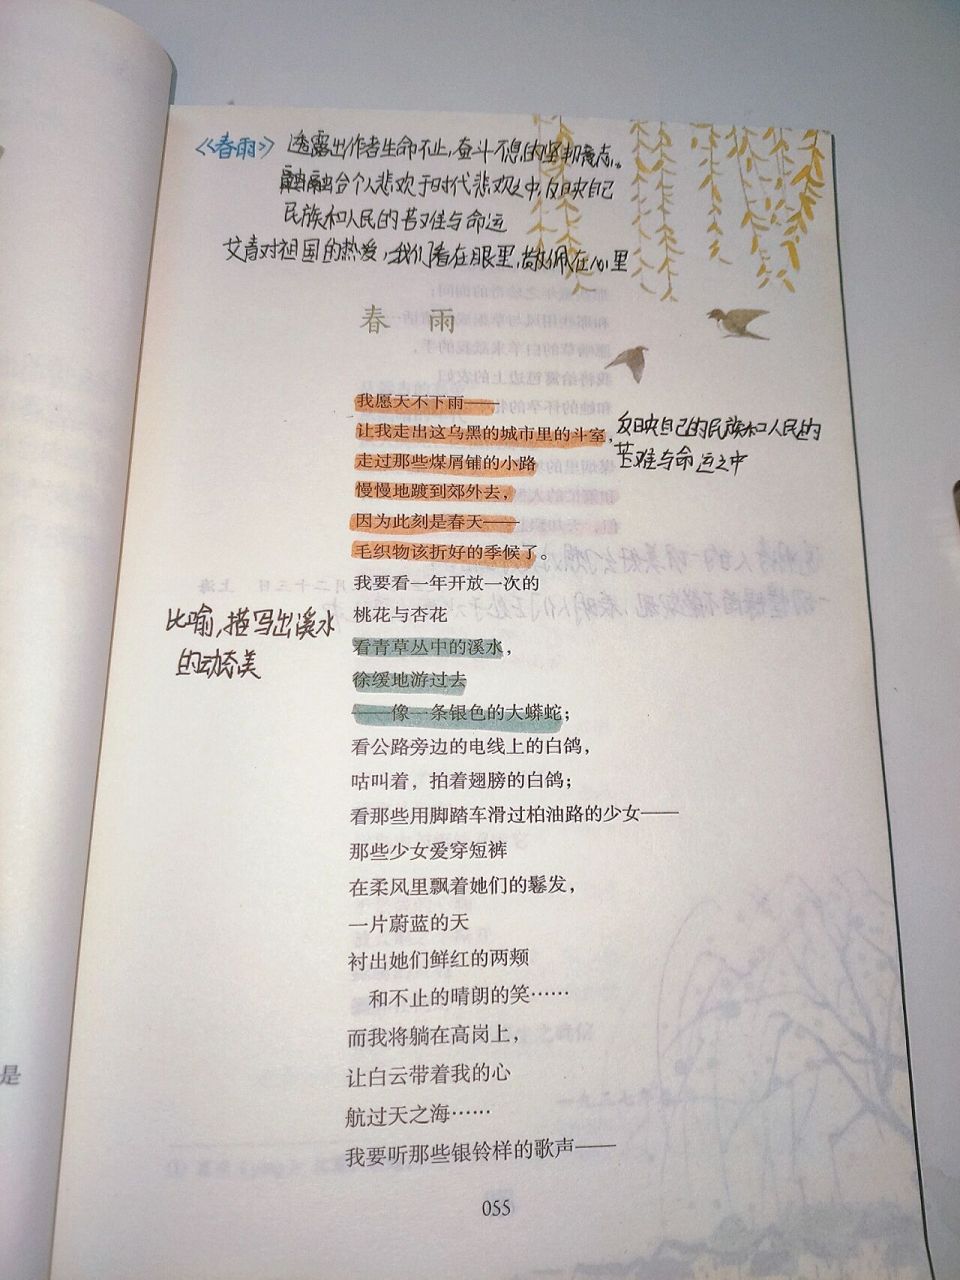 《春雨》 透露出作者生命不止,奋斗不息的坚韧意志。
融个人悲欢于时代悲欢之中,反映自己
民族和人民的苦难与命运
艾青对祖国的热爱,我们看在眼里,敬佩在心里
春 雨
我愿天不下雨——
让我走出这乌黑的城市里的斗室,
反映自己的民族和人民的
苦难与命运之中
走过那些煤屑铺的小路
慢慢地踱到郊外去,
因为此刻是春天——
毛织物该折好的季候了。
我要看一年开放一次的
桃花与杏花
比喻,描写出溪水
的动态美
看青草丛中的溪水,
徐缓地游过去
——像一条银色的大蟒蛇;
看公路旁边的电线上的白鸽,
咕叫着,拍着翅膀的白鸽;
看那些用脚踏车滑过柏油路的少女——
那些少女爱穿短裤
在柔风里飘着她们的鬈发,
一片蔚蓝的天
衬出她们鲜红的两颊
和不止的晴朗的笑……
而我将躺在高岗上,
让白云带着我的心
航过天之海……
我要听那些银铃样的歌声——
055
是